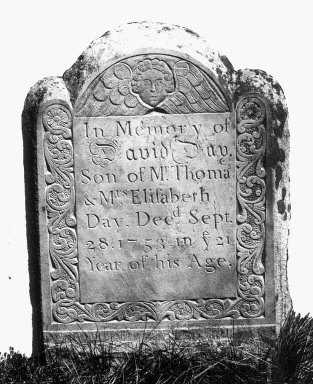 In Memory of
David Day,
Son of Mr. Thoma
& Mrs. Elisabeth
Day. Decd. Sept.
28: 1753. in ye 21
Year of his Age.